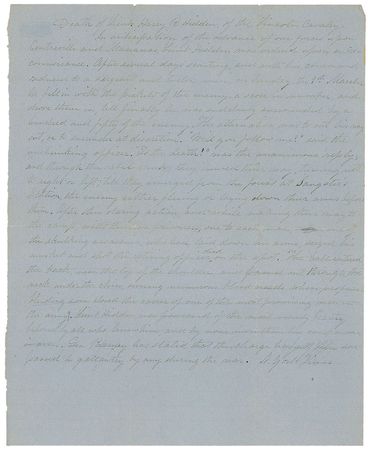 Death of Lieut. Harry B Hidden, of the Lincoln Cavalry
In anticipation of the advance of our forces upon
Centreville and Manassas Lieut. Hidden was ordered upon a re-
connoissance. After several days scouting, and with his command
reduced to a sergeant and on Sunday the 9th March
he fell in with the pickets of the enemy, a score in number, and
drove them in, till finally he was suddenly surrounded by a
hundred and fifty of the enemy. The alternative was to cut his way
out, or to surrender at discretion. "Will you follow me?" said the
unflinching officer. "To the death!" was the unanimous reply,
and through the
to right or left, till they emerged from the forest at Sangster's
Station the enemy either flying or laying down their arms before
them. After this daring action, and while making their way to
the camp with thirteen prisoners, one to each man,
the skulking assassins, who had laid down his arms, seized his
musket and shot the officer dead on the spot. The ball entered
the back, near the top of the shoulder and passed out through the
neck under the chin, severing numerous blood vessels whose profuse
bleeding soon closed the career of one of the most promising men in
the army. Lieut Hidden was possessed of the most
beloved by all who knew him, and by none more than his companions
in arms. Gen Kearney has stated that the charge
passed in gallantry by any during the war. N. York Times